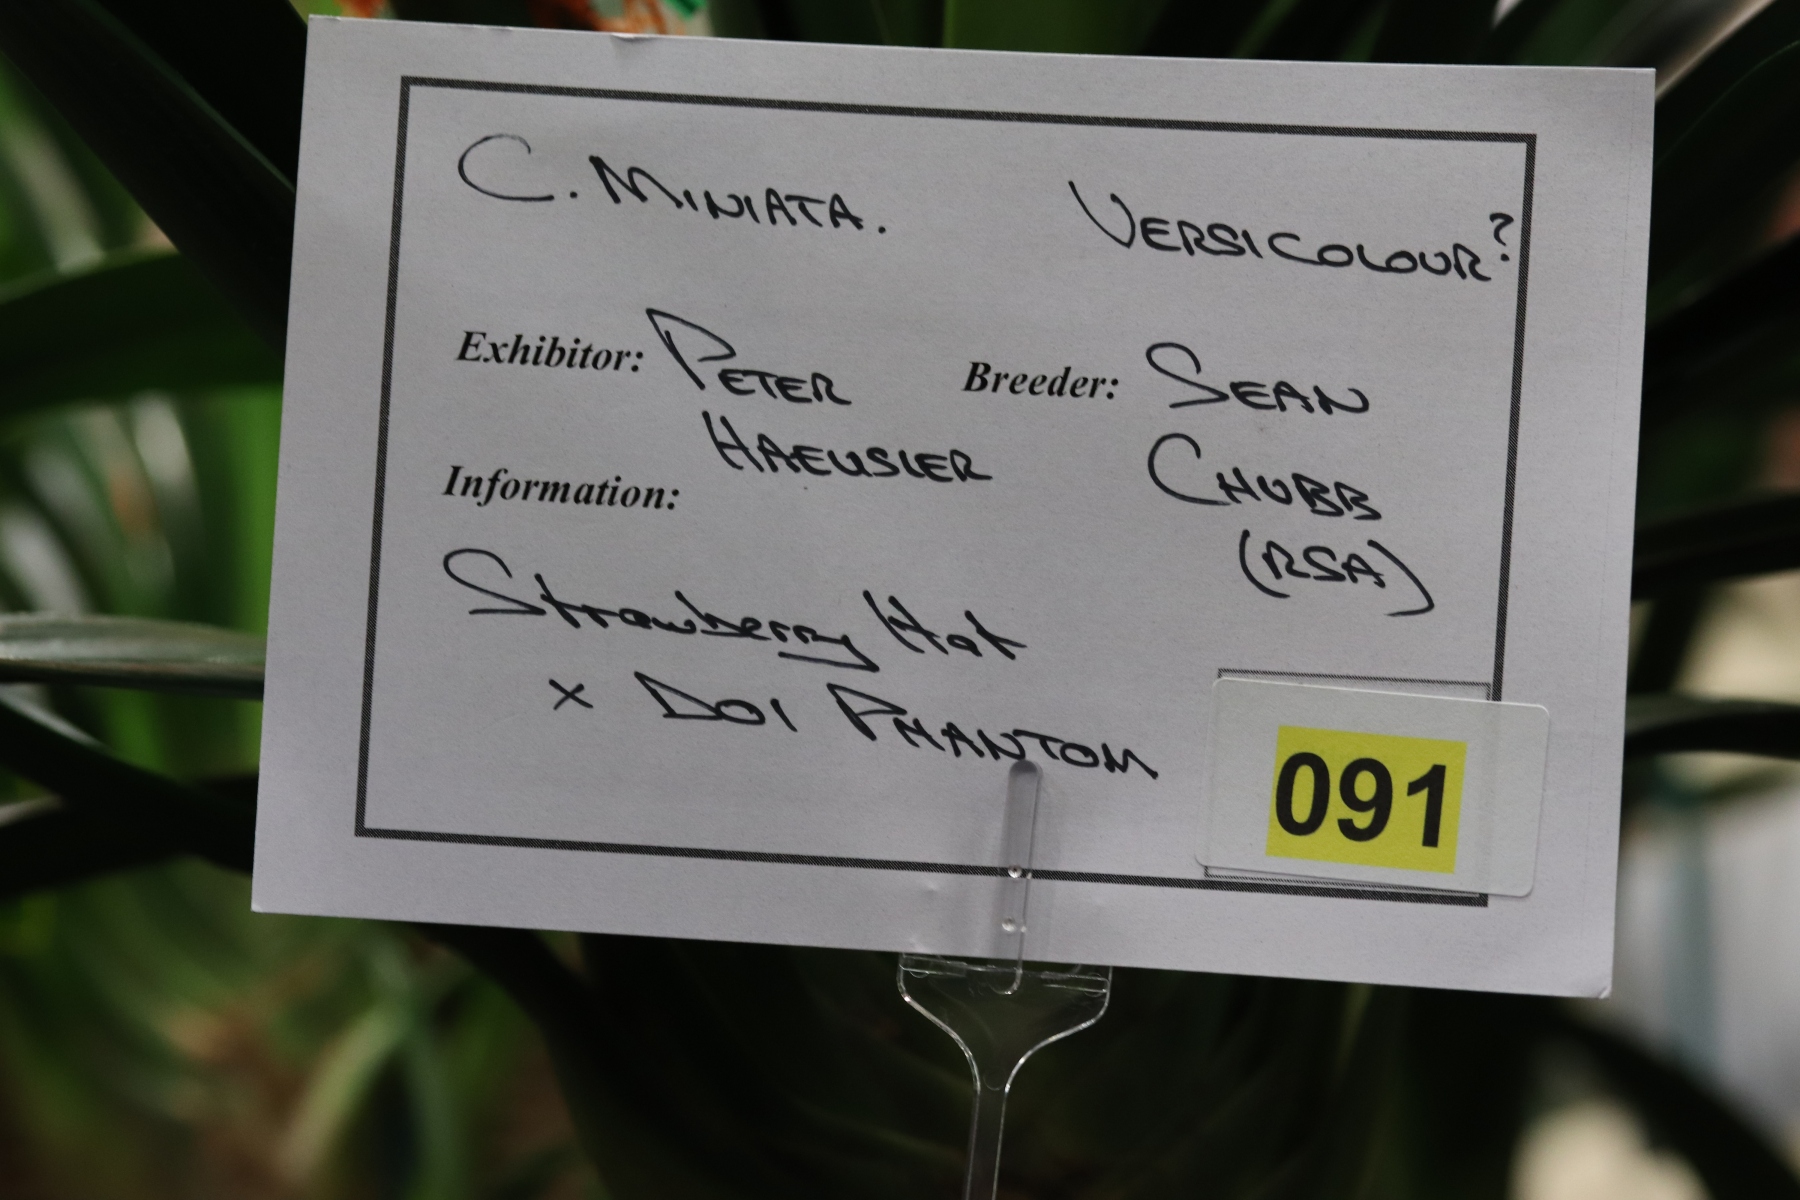 C. MINIATA. VERSICOLOUR?
Exhibitor: PETER HAEUSLER
Breeder: SEAN CHUBB (RSA)
Information:
Strawberry Hat
x DOI PHANTOM
091